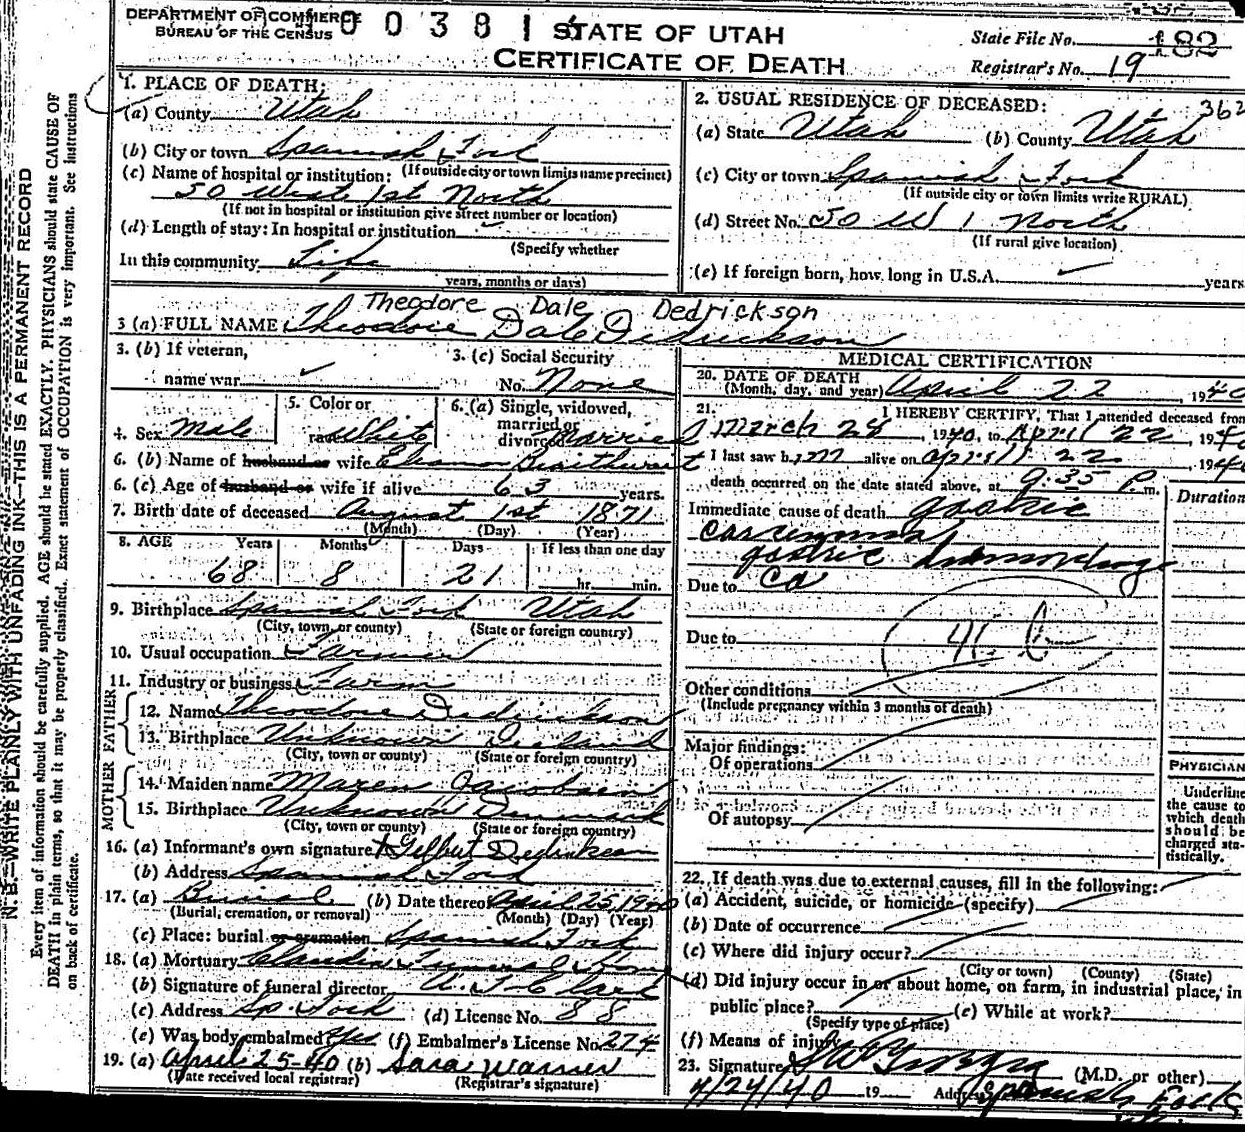 DEPARTMENT OF COMMERCE
BUREAU OF THE CENSUS
0 0 3 8 1
STATE OF UTAH
CERTIFICATE OF DEATH
State File No. 182
Registrar's No. 19
362
1. PLACE OF DEATH:
(a) County Utah
(b) City or town Spanish Fork
(If outside city or town limits name precinct)
(c) Name of hospital or institution:
50 West 1st North
(If not in hospital or institution give street number or location)
(d) Length of stay: In hospital or institution
(Specify whether
In this community Life
years, months or days)
2. USUAL RESIDENCE OF DECEASED:
(a) State Utah (b) County Utah
(c) City or town Spanish Fork
(If outside city or town limits write RURAL)
(d) Street No. 50 W 1 North
(If rural give location)
(e) If foreign born, how long in U.S.A. years
Theodore Dale Dedrickson
3 (a) FULL NAME Theodore Dale Dedrickson
3. (b) If veteran,
name war
3. (c) Social Security
No. None
4. Sex Male
5. Color or
race White
6. (a) Single, widowed,
married or
divorced Married
6. (b) Name of husband or wife Eleanor
6. (c) Age of husband or wife if alive 63 years.
7. Birth date of deceased August 1st 1871
(Month) (Day) (Year)
8. AGE Years Months Days If less than one day
68 8 21 hr. min.
9. Birthplace Spanish Fork Utah
(City, town, or county) (State or foreign country)
10. Usual occupation Farmer
11. Industry or business Farm
FATHER
12. Name Theodore Dedrickson
13. Birthplace Unknown Iceland
(City, town or county) (State or foreign country)
MOTHER
14. Maiden name Maren Jacobsen
15. Birthplace Unknown Denmark
(City, town or county) (State or foreign country)
16. (a) Informant's own signature Gilbert Dedrickson
(b) Address Spanish Fork
17. (a) Burial (b) Date thereof April 25, 1940
(Burial, cremation, or removal) (Month) (Day) (Year)
(c) Place: burial or cremation Spanish Fork
18. (a) Mortuary Claudin Funeral Home
(b) Signature of funeral director A. Y. Clark
(c) Address Sp. Fork (d) License No. 88
(e) Was body embalmed Yes (f) Embalmer's License No. 274
19. (a) April 25-40 (b) Sara Warner
(Date received local registrar) (Registrar's signature)
MEDICAL CERTIFICATION
20. DATE OF DEATH
(Month, day, and year) April 22, 1940
21. I HEREBY CERTIFY, That I attended deceased from
March 28, 1940, to April 22, 1940
I last saw him alive on April 22, 1940
death occurred on the date stated above, at 9:35 P. m.
Duration
Immediate cause of death gastric
carcinoma
gastric hemorrhage
Due to Ca
Due to
Other conditions
(Include pregnancy within 3 months of death)
Major findings:
Of operations
Of autopsy
PHYSICIAN
Underline
the cause to
which death
should be
charged sta-
tistically.
22. If death was due to external causes, fill in the following:
(a) Accident, suicide, or homicide (specify)
(b) Date of occurrence
(c) Where did injury occur?
(City or town) (County) (State)
(d) Did injury occur in or about home, on farm, in industrial place, in
public place?
(Specify type of place)
(e) While at work?
(f) Means of injury
23. Signature (M.D. or other)
4/24/40 19 Address Spanish Fork
N. B.—WRITE PLAINLY WITH UNFADING INK—THIS IS A PERMANENT RECORD
Every item of information should be carefully supplied. AGE should be stated EXACTLY. PHYSICIANS should state CAUSE OF
DEATH in plain terms, so that it may be properly classified. Exact statement of OCCUPATION is very important. See Instructions
on back of certificate.